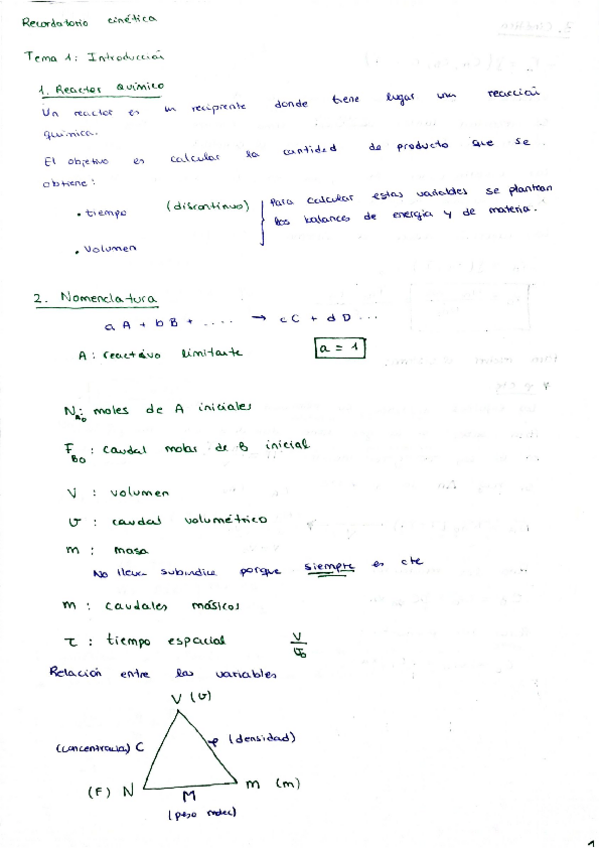 Recordatorio cinética
Tema 1: Introducción
1. Reactor químico
Un reactor es un recipiente donde tiene lugar una reacción
química.
El objetivo es calcular la cantidad de producto que se
obtiene:
• tiempo (discontinuo) Para calcular estas variables se plantean
los balances de energía y de materia.
• Volumen
2. Nomenclatura
a A + b B + .... → c C + d D ...
A: reactivo limitante a = 1
N_A0: moles de A iniciales
F_B0: caudal molar de B inicial
V : volumen
v : caudal volumétrico
m : masa
No lleva subíndice porque siempre es cte
m : caudales másicos
τ : tiempo espacial V/v0
Relación entre las variables
V (v)
(concentración) C ρ (densidad)
(F) N M m (m)
(peso molec)
1